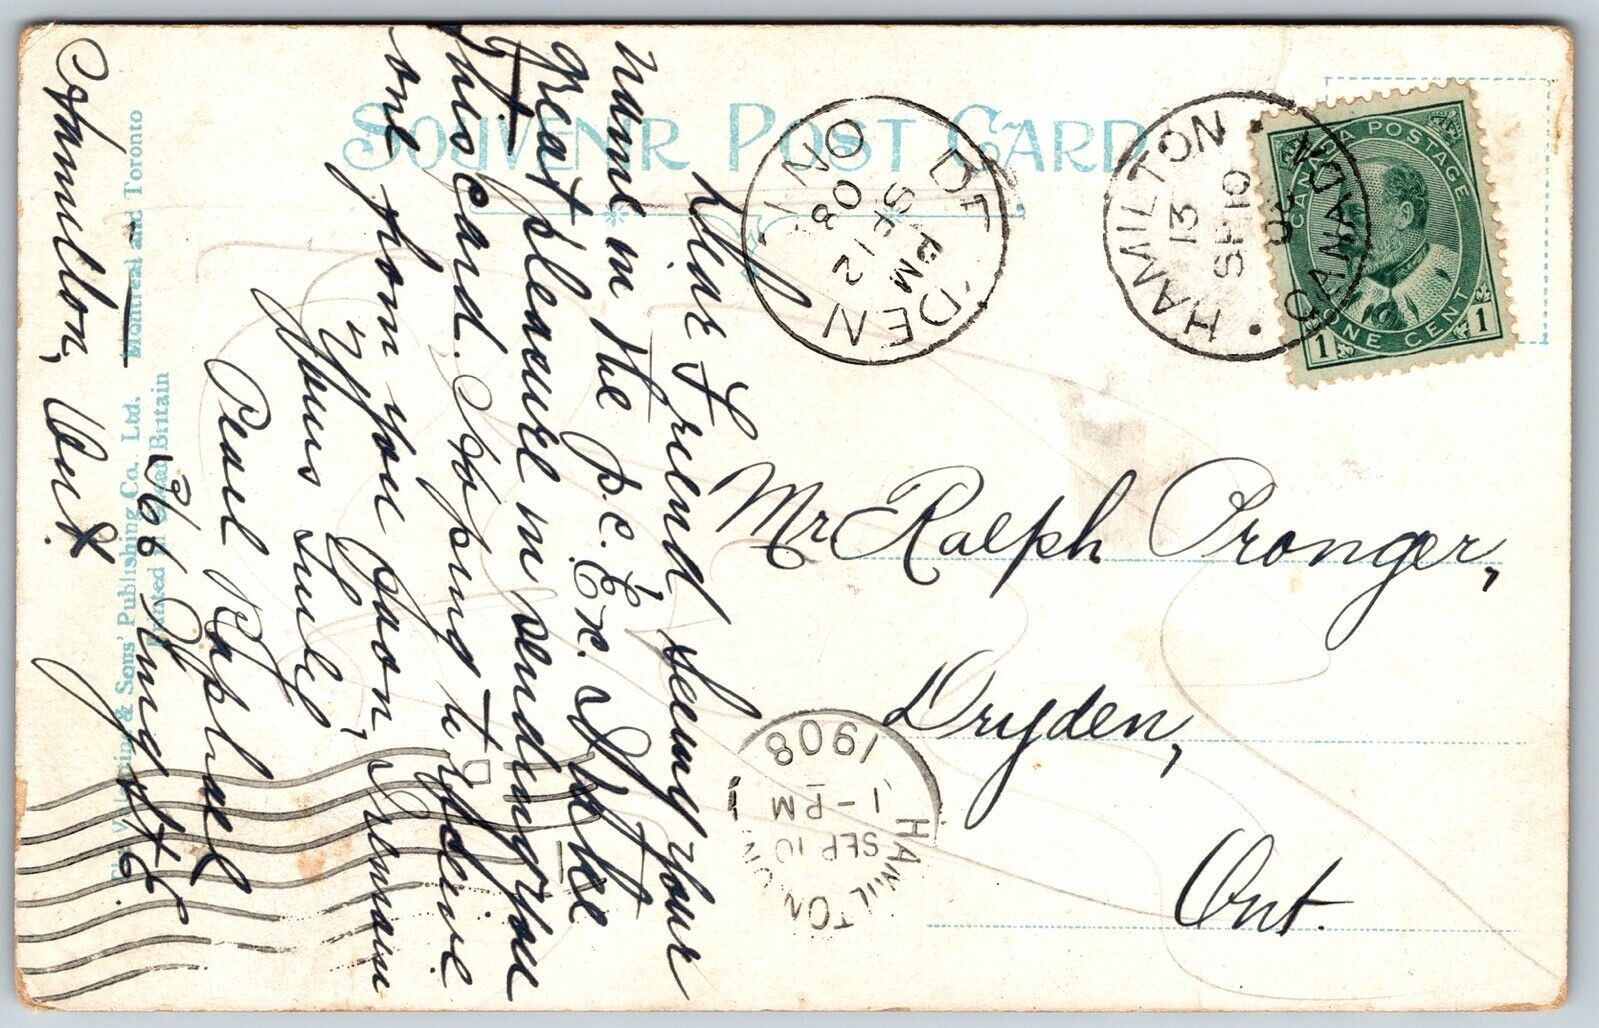 SOUVENIR POST CARD
HAMILTON
13
SP 10
08
CANADA
CANADA POSTAGE
ONE CENT
1 1
DRYDEN
PM
SE 12
08
ONT
HAMILTON
SEP 10
1-PM
1908
Dear Friend Seeing your
name in the p.c. Ex. I take
great pleasure in sending you
this card. Hoping to receive
one from you soon, I remain
Yours truly
Pearl Raphael
366 King St E
Hamilton, Ont.
Mr Ralph Pronger,
Dryden,
Ont.
& Sons' Publishing Co., Ltd. Montreal and Toronto
Printed in Great Britain